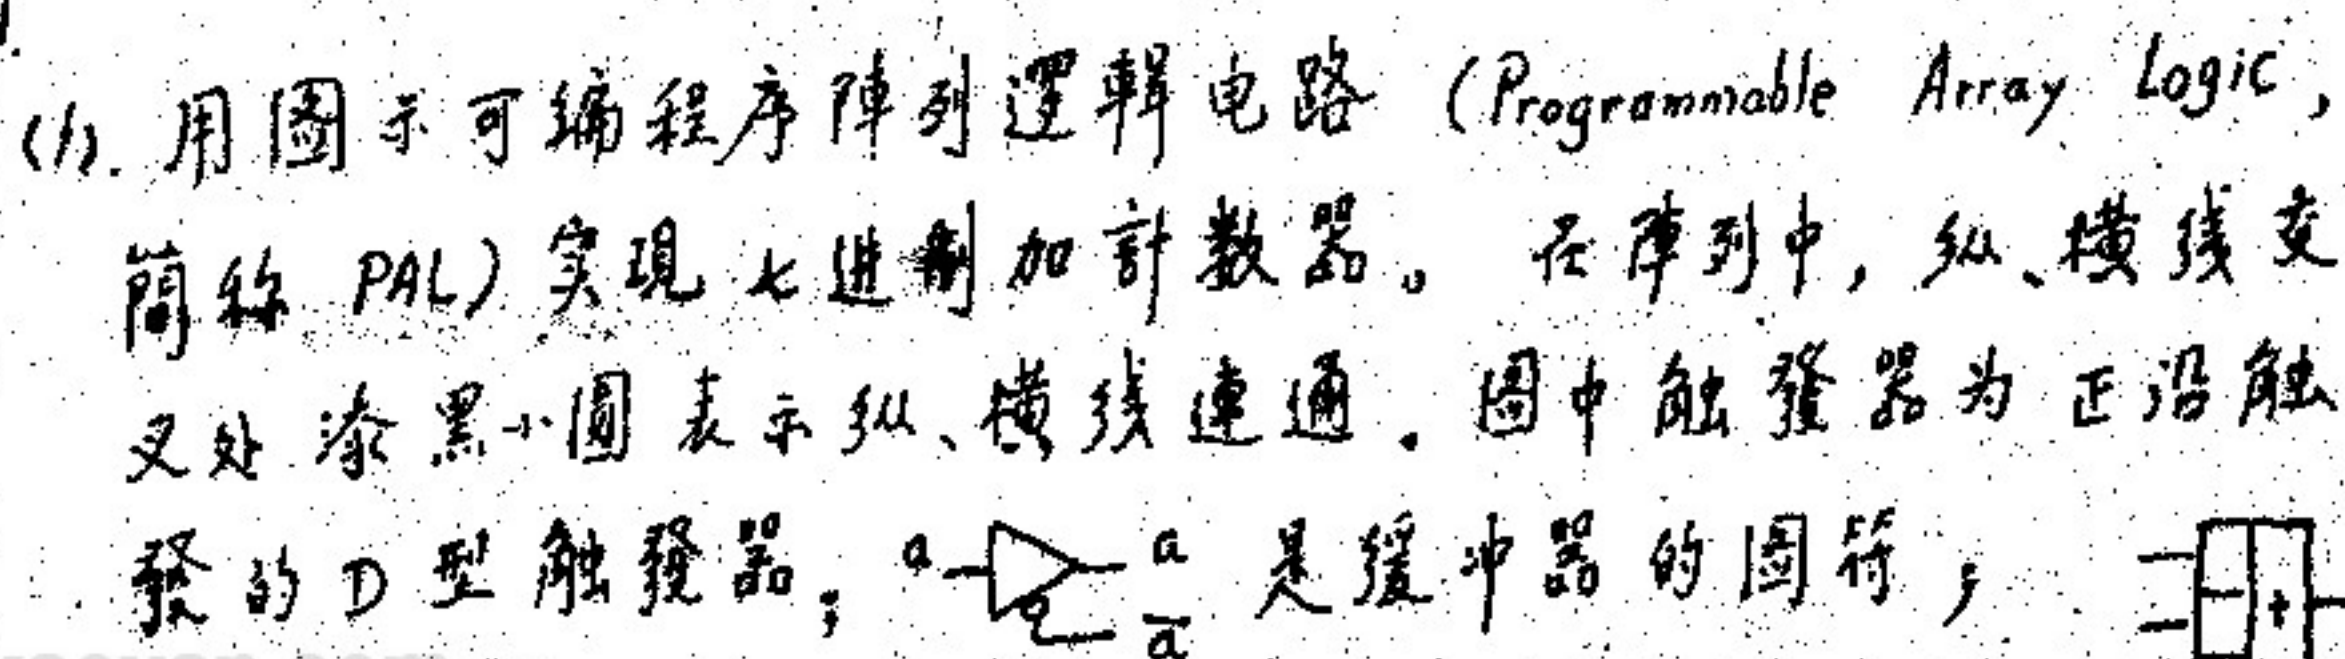 (1). 用圖示可编程序陣列邏輯电路 (Programmable Array Logic,
簡称 PAL) 实現七进制加計数器。 在陣列中, 纵、橫线交
叉处涂黑小圓表示纵、橫线連通. 图中触發器为正沿触
發的D型触發器; a a 是缓冲器的图符;
a̅ +